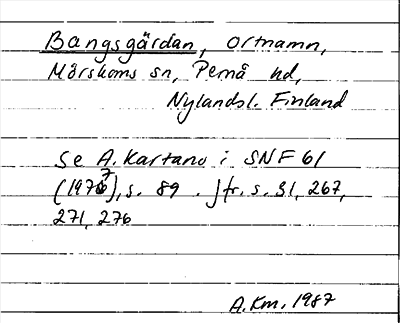 Bangsgärdan, ortnamn,
Mörskoms sn, Pernå hd,
Nylandsl. Finland
Se A. Kartano i SNF 61
(1977), s. 89. Jfr. s. 31, 267,
271, 276
A.Km. 1987